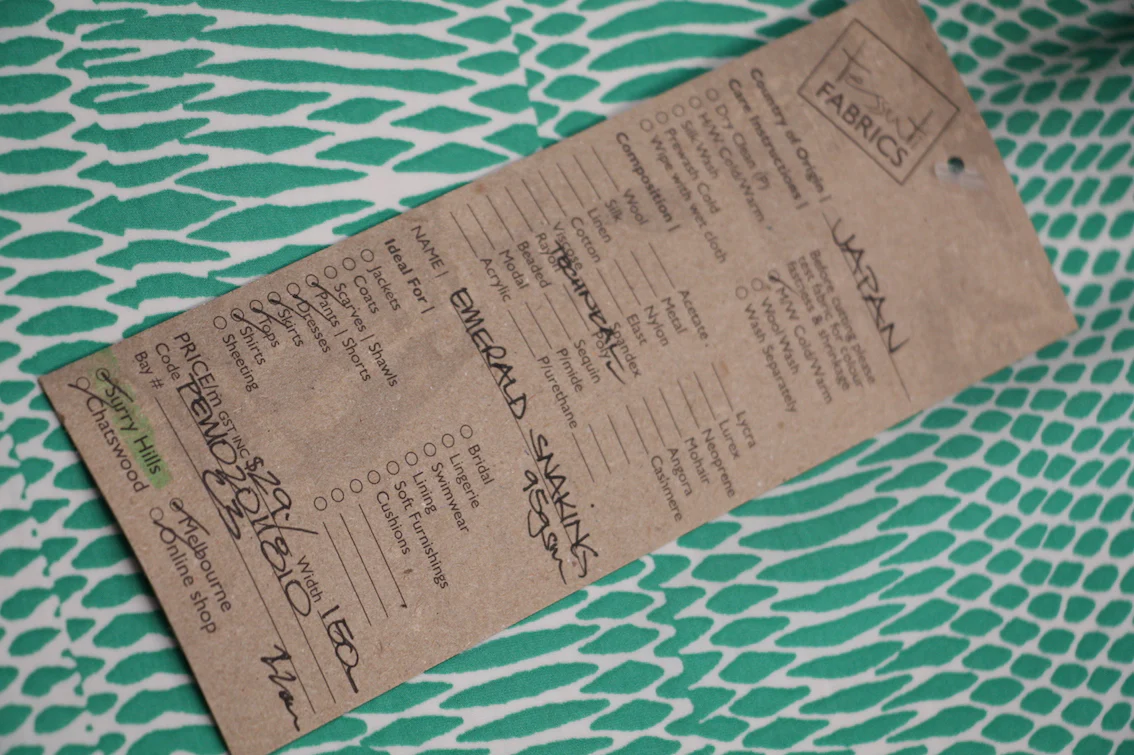 Tessuti
FABRICS
Country of Origin | JAPAN
Care Instructions |
Dry Clean (P)
H/W Cold/Warm
Silk Wash
Prewash Cold
Wipe with wet cloth
Before cutting please
test fabric for colour
fastness & shrinkage
M/W Cold/Warm
Wool Wash
Wash Separately
Composition |
Wool
Silk
Linen
Cotton
Viscose
Rayon
Beaded
Modal
Acrylic
Acetate
Metal
Nylon
Elast
Spandex
Poly
Sequin
P/mide
P/urethane
Lycra
Lurex
Neoprene
Mohair
Angora
Cashmere
NAME | EMERALD SNAKING
95gsm
Ideal For |
Jackets
Coats
Scarves | Shawls
Pants | Shorts
Dresses
Skirts
Tops
Shirts
Sheeting
Bridal
Lingerie
Swimwear
Lining
Soft Furnishings
Cushions
PRICE/m GST INC $29.- Width 150
Code
Bay #
Surry Hills
Chatswood
Melbourne
Online shop